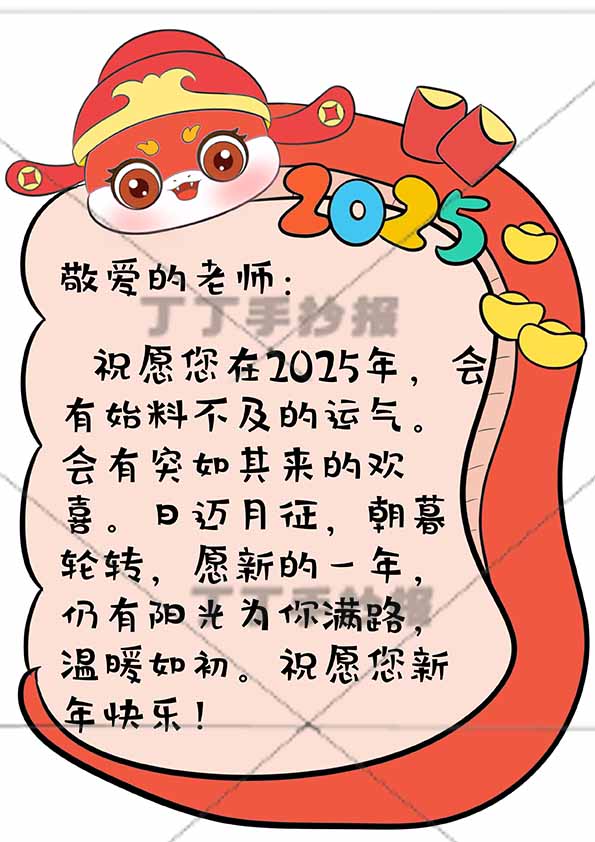 2025
敬爱的老师：
丁丁手抄报
祝愿您在2025年，会
有始料不及的运气。
会有突如其来的欢
喜。日迈月征，朝暮
轮转，愿新的一年，
丁丁手抄报
仍有阳光为你满路，
温暖如初。祝愿您新
年快乐！